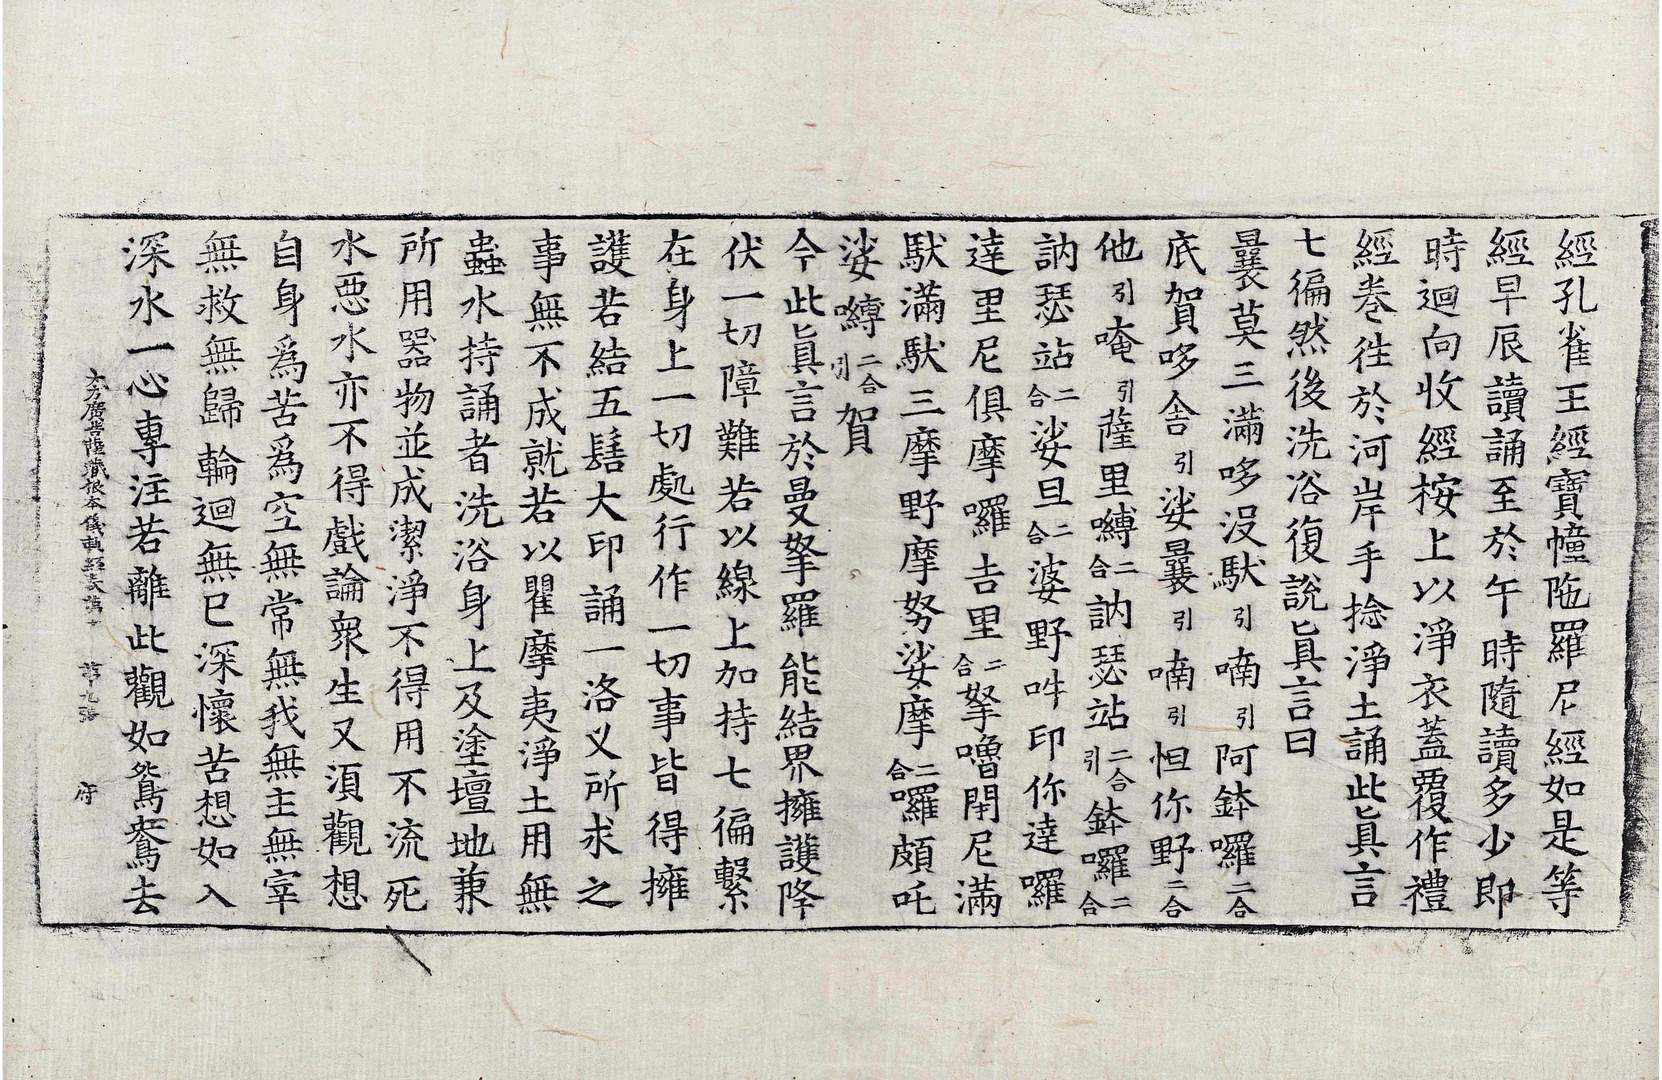 經孔雀王經寶幢陁羅尼經如是等
經早辰讀誦至於午時隨讀多少即
時迴向收經桉上以淨衣蓋覆作禮
經卷徃於河岸手捻淨土誦此真言
七徧然後洗浴復說真言曰
曩莫三滿哆沒馱引喃引阿鉢囉二合
底賀哆舍引娑曩引喃引怛你野二合
他引唵引薩里嚩二合訥瑟站二合引鉢囉二合
訥瑟站二合娑旦二合婆野吽印你達囉
達里尼俱摩囉吉里二合拏嚕閉尼滿
馱滿馱三摩野摩努娑摩二合囉頗吒
娑嚩二合引賀
今此真言於曼拏羅能結界擁護降
伏一切障難若以線上加持七徧繫
在身上一切處行作一切事皆得擁
護若結五髻大印誦一洛叉所求之
事無不成就若以瞿摩夷淨土用無
蟲水持誦者洗浴身上及塗壇地兼
所用器物並成潔淨不得用不流死
水惡水亦不得戲論衆生又須觀想
自身爲苦爲空無常無我無主無宰
無救無歸輪迴無已深懷苦想如入
深水一心專注若離此觀如鴛鴦去
大方廣菩薩藏根本儀軌經 第九張 府